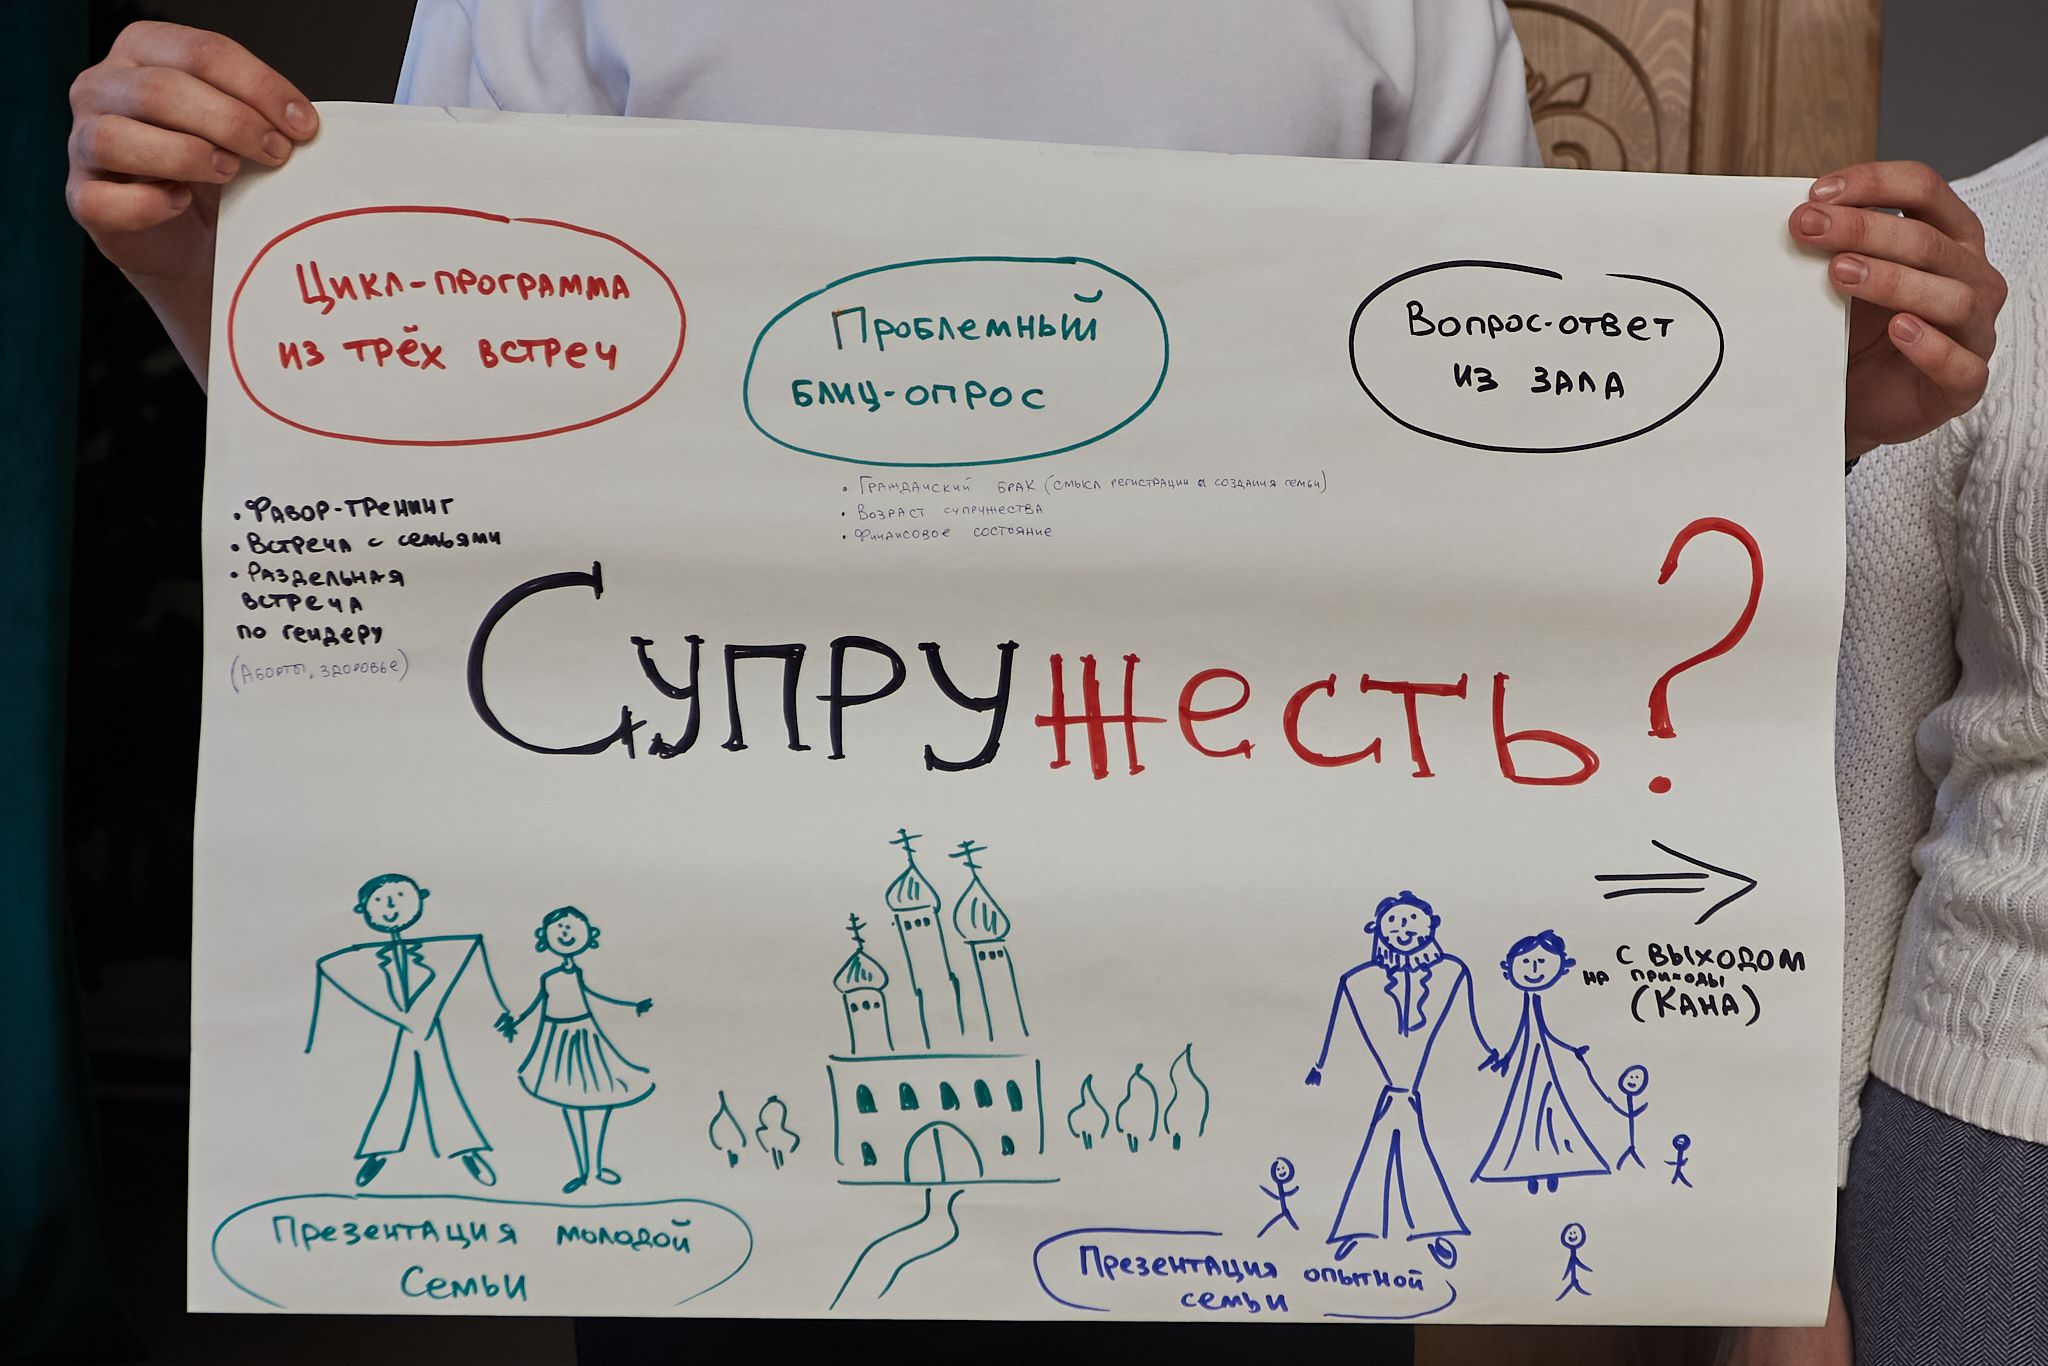 Цикл-программа
из трёх встреч
Проблемный
блиц-опрос
Вопрос-ответ
из зала
• Фавор-тренинг
• Встреча с семьями
• Раздельная
встреча
по гендеру
(Аборты, здоровье)
• Гражданский брак (смысл регистрации и создания семьи)
• Возраст супружества
• Финансовое состояние
Супружесть?
с выходом
на приходы
(Кана)
Презентация молодой
семьи
Презентация опытной
семьи